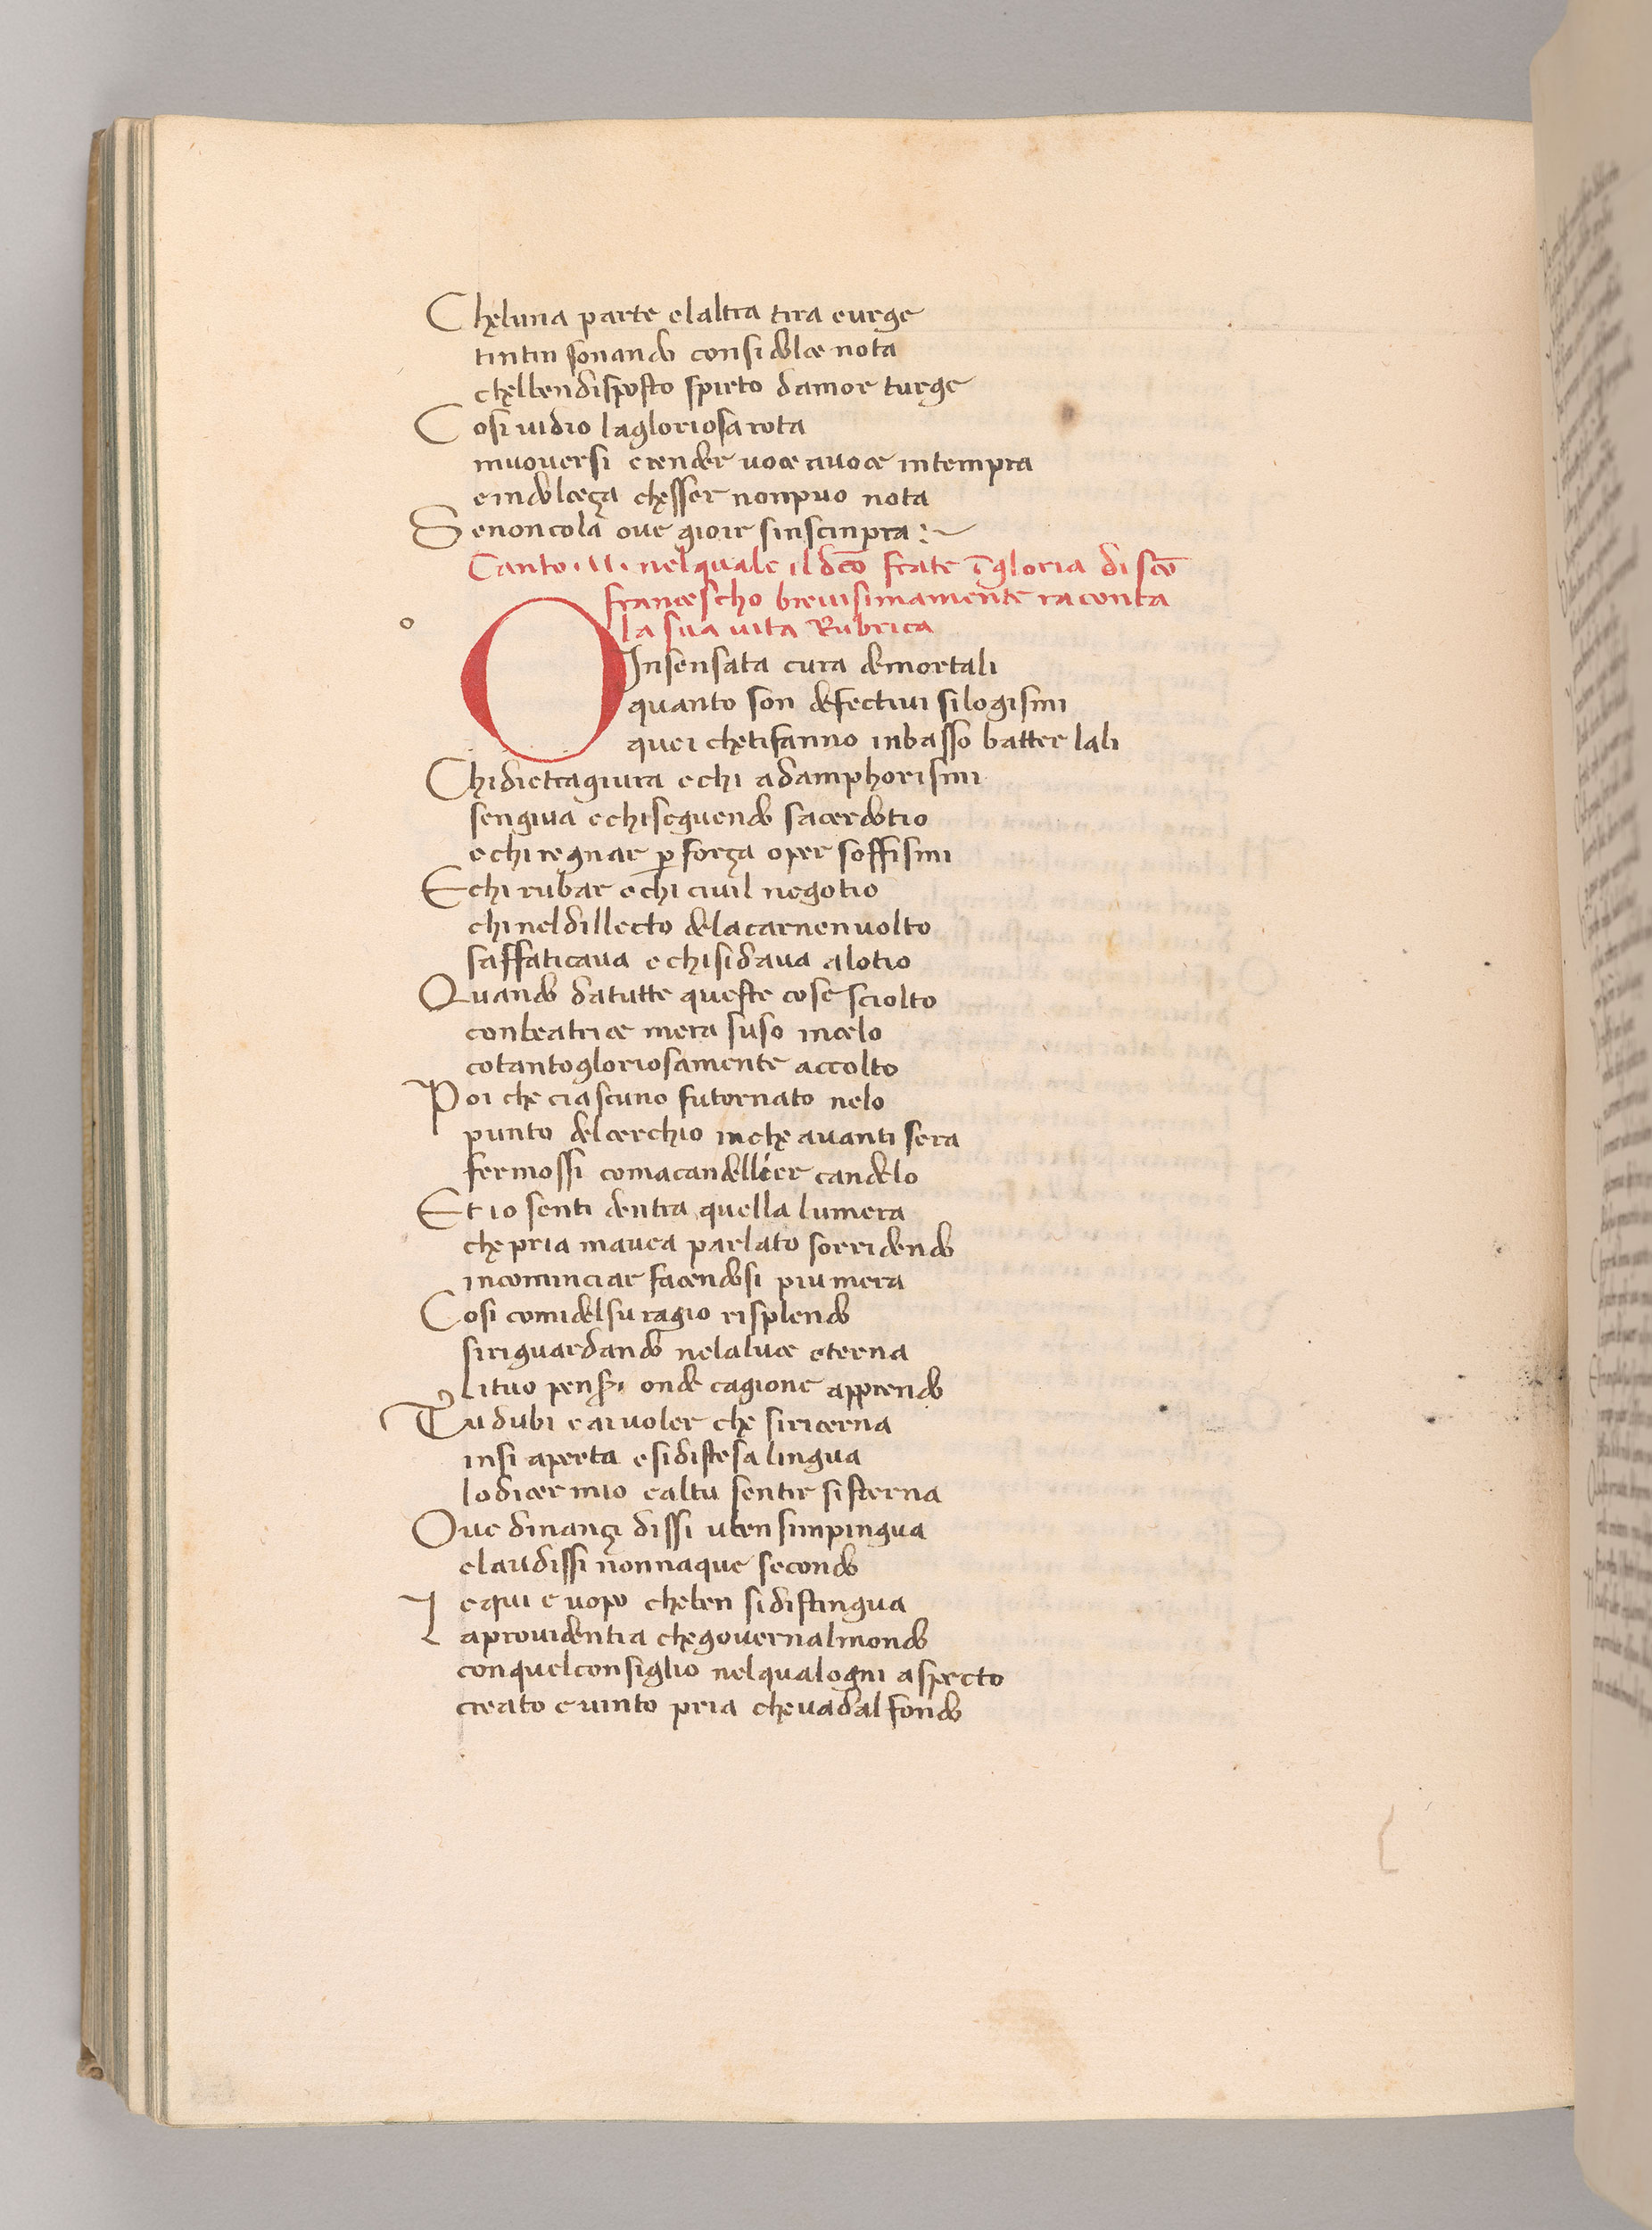 Cheluna parte elaltra tira eurge
tintin sonando consi dolce nota
chelben disposto spirto damor turge
Cosi uidio lagloriosa rota
muouersi erender uoce auoce intempra
eindolceça chesser nonpuo nota
Senoncola oue gioir sinsempra :~
Canto .XI. nelquale il dco frate i gloria di sco
francescho breuisimamente raconta
la sua uita Rubrica
o
O Insensata cura demortali
quanto son defectiui silogismi
quei chetifanno inbasso batter lali
Chi dietragiura echi adamphorismi
sengiua echiseguendo sacerdotio
echi regnar p força oper soffismi
Echi rubar echi ciuil negotio
chi neldillecto delacarnenuolto
saffaticaua echisidaua alotio
Quando datutte queste cose sciolto
conbeatrice mera suso incelo
cotanto gloriosamente accolto
Poi che ciascuno futornato nelo
punto delcerchio inche auanti sera
fermossi comacandellier candelo
Et io senti dentra quella lumera
che pria mauea parlato sorridendo
incominciar facendosi piu mera
Cosi comidelsu ragio risplendo
siriguardando nelaluce eterna
li tuo pensr onde cagione apprendo
Tu dubi e ai uoler che siricerna
insi aperta esidistesa lingua
lo dicer mio caltu sentir sisterna
Oue dinançi dissi uben simpingua
elaudissi nonnaque secondo
e qui e uopo cheben sidistingua
Laprouidentia chegouernalmondo
conquelconsiglio nelqualogni aspecto
creato e uinto pria cheuadalfondo